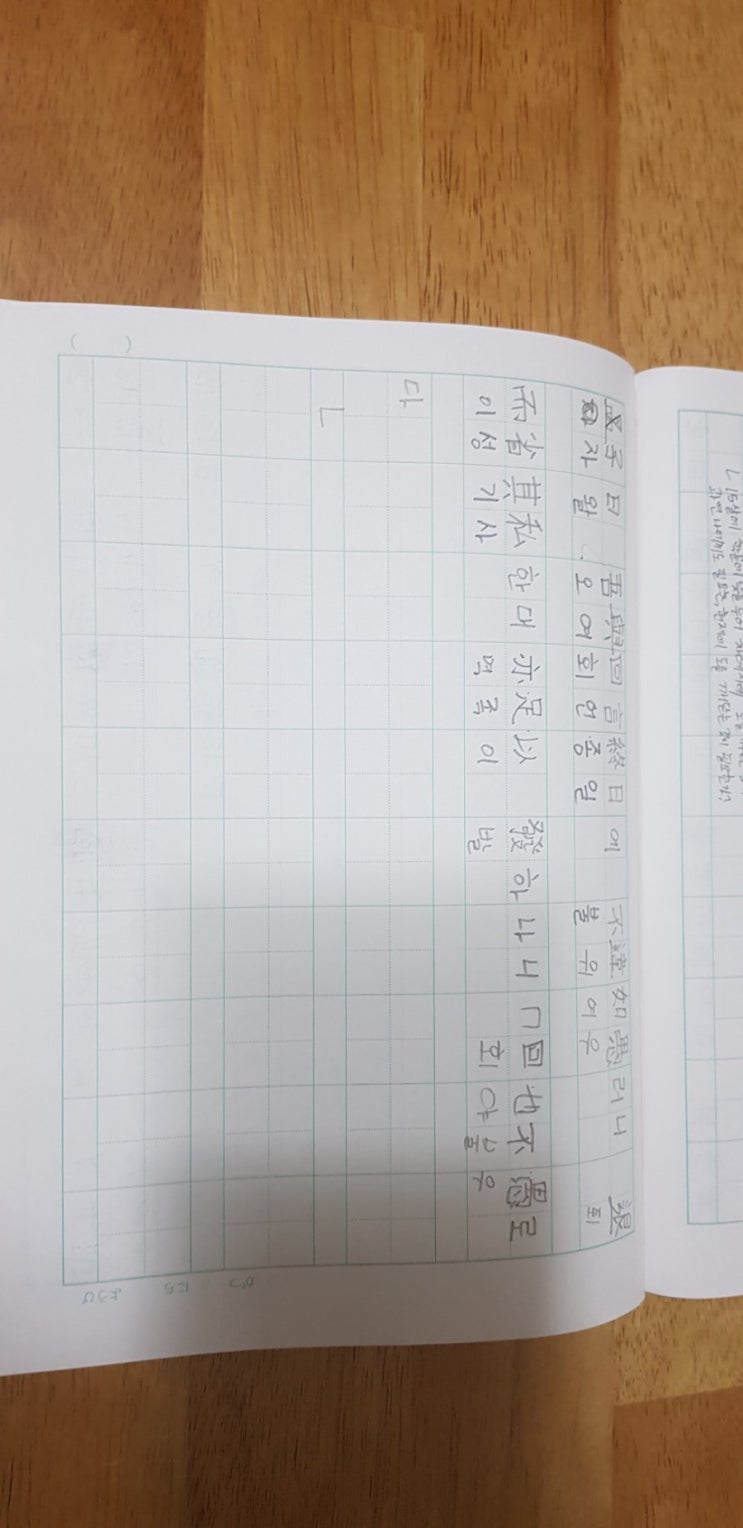 子曰 吾與回言終日에 不違如愚러니 退
자왈 오여회언종일 불위여우 퇴
而省其私한대 亦足以發하나니 ㄱ回也不愚로
이성기사 역족이발 회야불우
다
ㄴ
がつ
にち
ようび